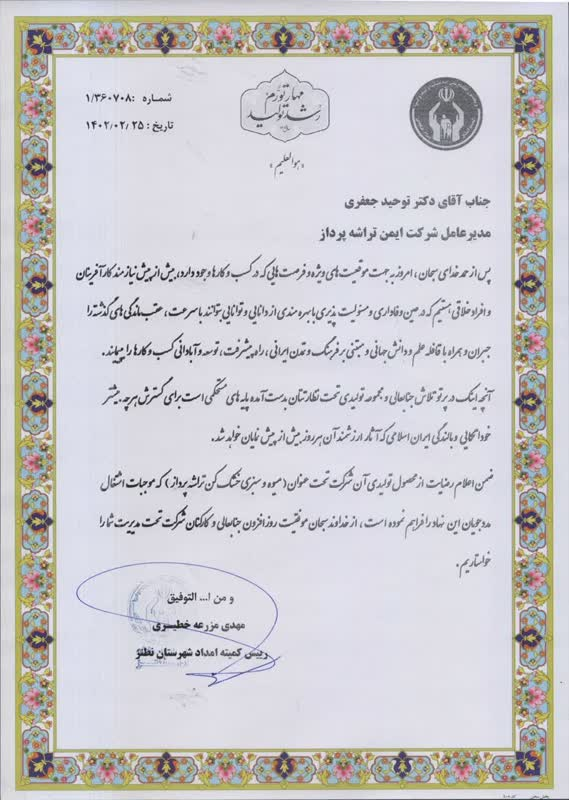 شماره :۱/۳۶۰۷۰۸
تاریخ : ۱۴۰۲/۰۲/۲۵
مهار تورم
رشد تولید
«هو العلیم»
جناب آقای دکتر توحید جعفری
مدیرعامل شرکت ایمن تراشه پرداز
پس از حمد خدای سبحان ، امروز به جهت موقعیت های ویژه و فرصت هایی که در کسب و کارها وجود دارد، بیش از پیش نیازمند کارآفرینان
و افراد خلاقی هستیم که در عین وفاداری و مسئولیت پذیری با بهره مندی از دانایی و توانایی بتوانند با سرعت ، عقب ماندگی های گذشته را
جبران و همراه با قافله علم و دانش جهانی و مبتنی بر فرهنگ و تمدن ایرانی ، راه پیشرفت ، توسعه و آبادانی کسب و کارها را بپیمایند.
آنچه اینک در پرتو تلاش جنابعالی و مجموعه تولیدی تحت نظارتتان بدست آمده پایه های مستحکمی است برای گسترش هرچه بیشتر
خوداتکایی و بالندگی ایران اسلامی که آثار ارزشمند آن هر روز بیش از پیش نمایان خواهد شد.
ضمن اعلام رضایت از محصول تولیدی آن شرکت تحت عنوان (میوه و سبزی خشک کن تراشه پرداز ) که موجبات اشتغال
مددجویان این نهاد را فراهم نموده است ، از خداوند سبحان موفقیت روزافزون جنابعالی و کارکنان شرکت تحت مدیریت شما را
خواستاریم.
و من ا... التوفیق
مهدی مزرعه خطیری
رییس کمیته امداد شهرستان نطنز